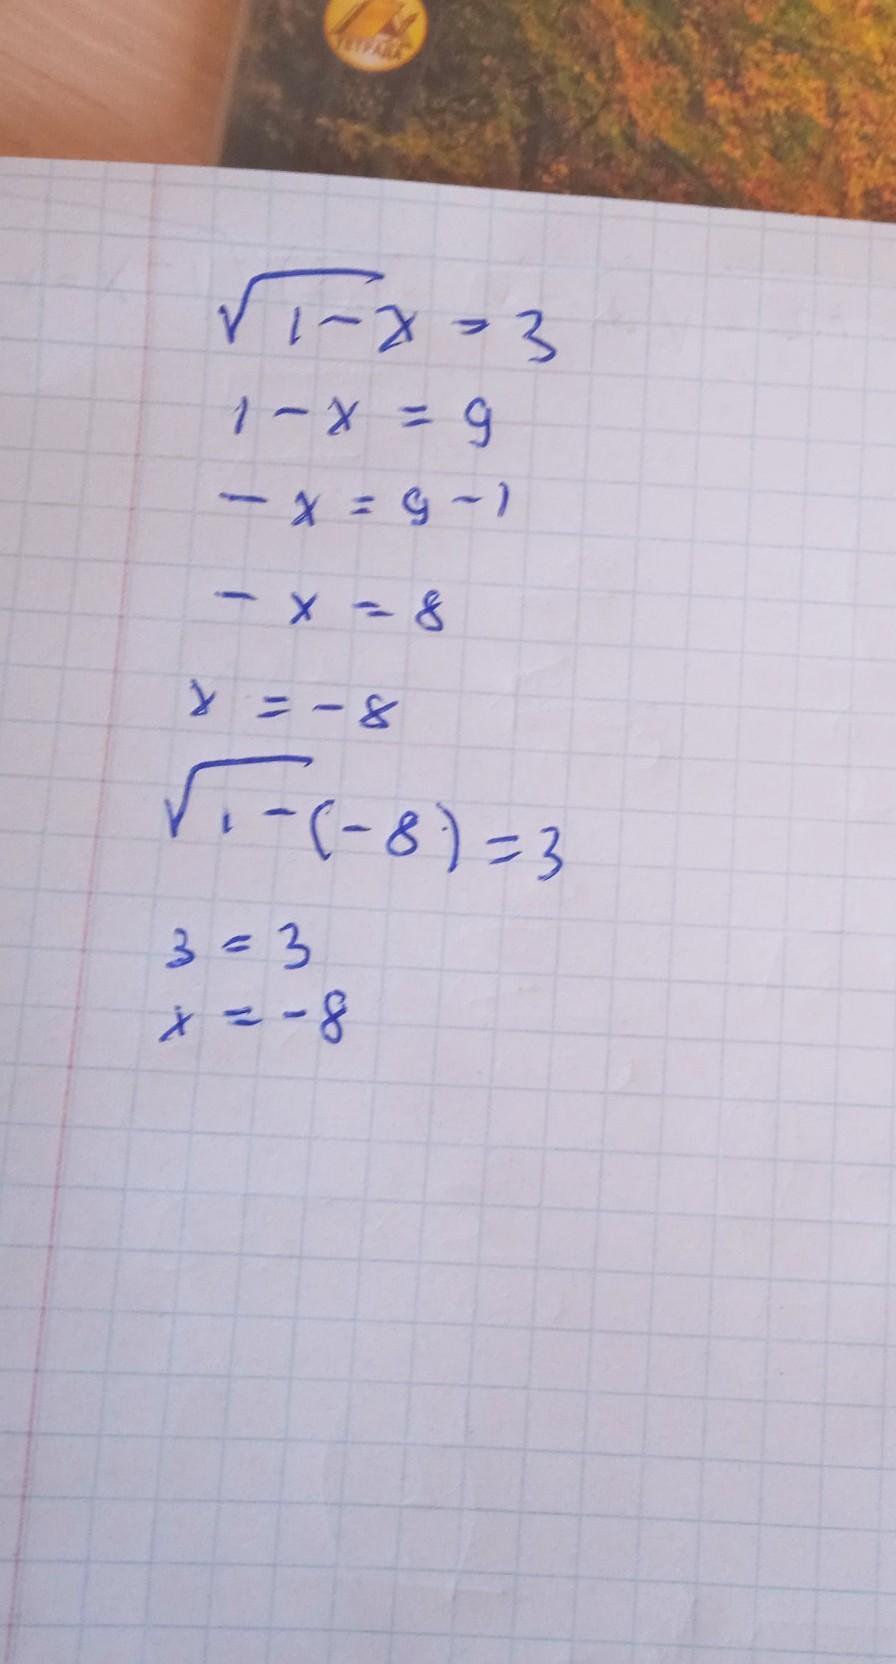 √1-x = 3
1 - x = 9
- x = 9 - 1
- x = 8
x = - 8
√1-(-8) = 3
3 = 3
x = - 8